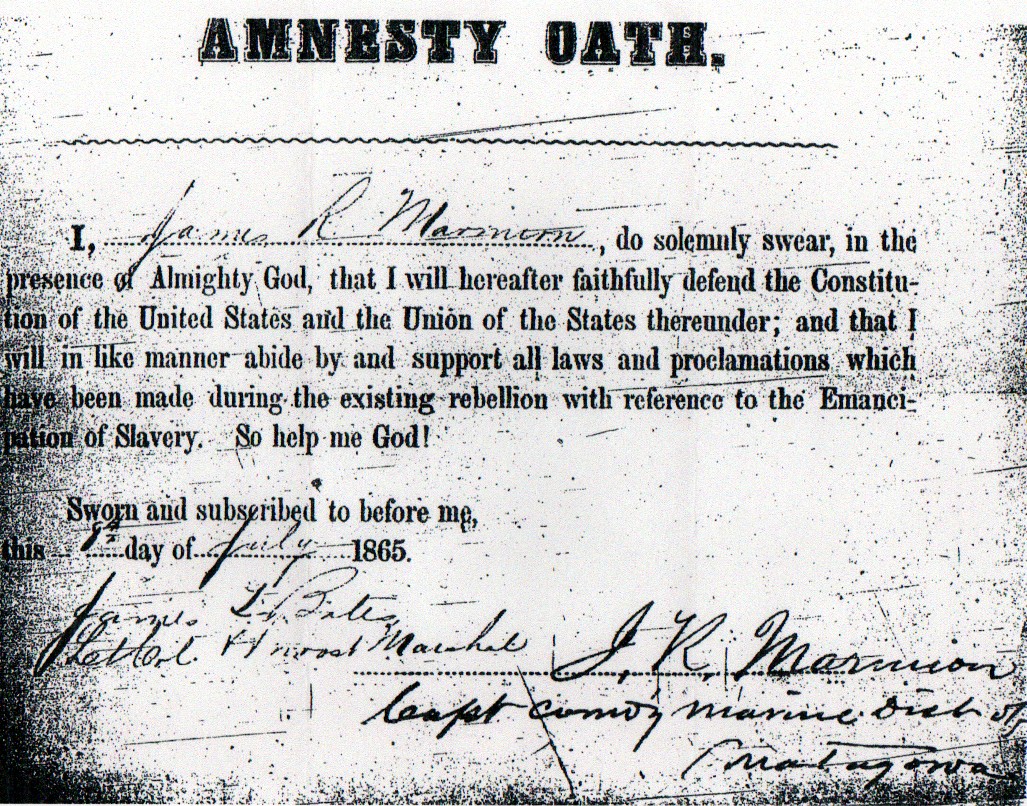 AMNESTY OATH.
I, James R Marmion, do solemnly swear, in the
presence of Almighty God, that I will hereafter faithfully defend the Constitu-
tion of the United States and the Union of the States thereunder; and that I
will in like manner abide by and support all laws and proclamations which
have been made during the existing rebellion with reference to the Emanci-
pation of Slavery. So help me God!
Sworn and subscribed to before me,
this 8th day of July 1865.
James L. Bates
Lt Col. Provost Marshal
J. R. Marmion
Capt comdg marine Dist of
Matagorda